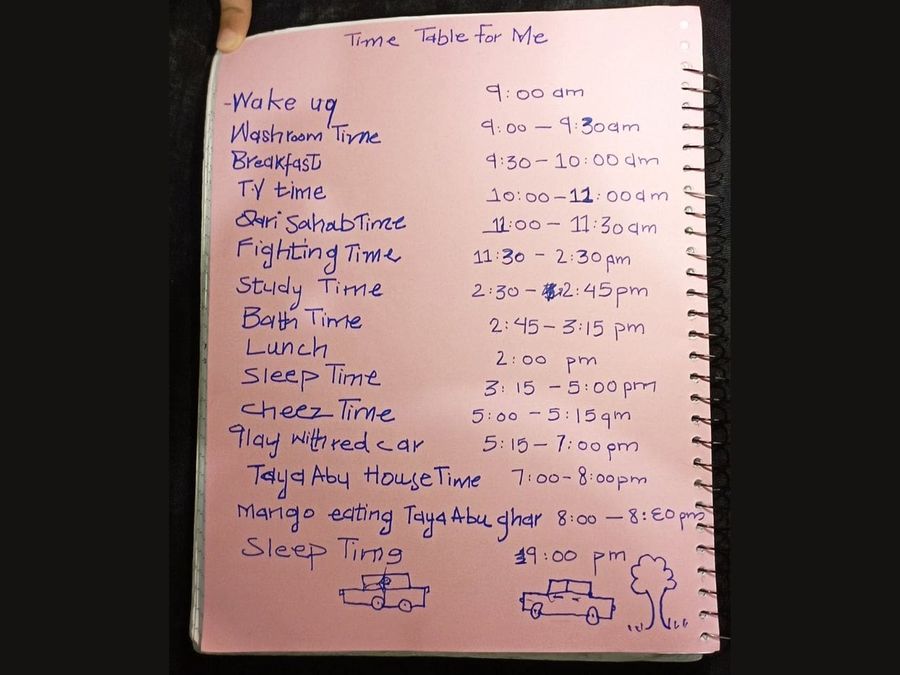 Time Table for Me
-Wake up 9:00 am
Washroom Time 9:00 – 9:30am
Breakfast 9:30 – 10:00 am
T.V time 10:00 – 11:00am
Qari Sahab Time 11:00 – 11:30am
Fighting Time 11:30 – 2:30pm
Study Time 2:30 – 2:45pm
Bath Time 2:45 – 3:15 pm
Lunch 2:00 pm
Sleep Time 3:15 – 5:00pm
Cheez Time 5:00 – 5:15am
Play with red car 5:15 – 7:00pm
Taya Abu House Time 7:00 – 8:00pm
Mango eating Taya Abu ghar 8:00 – 8:30 pm
Sleep Time 9:00 pm